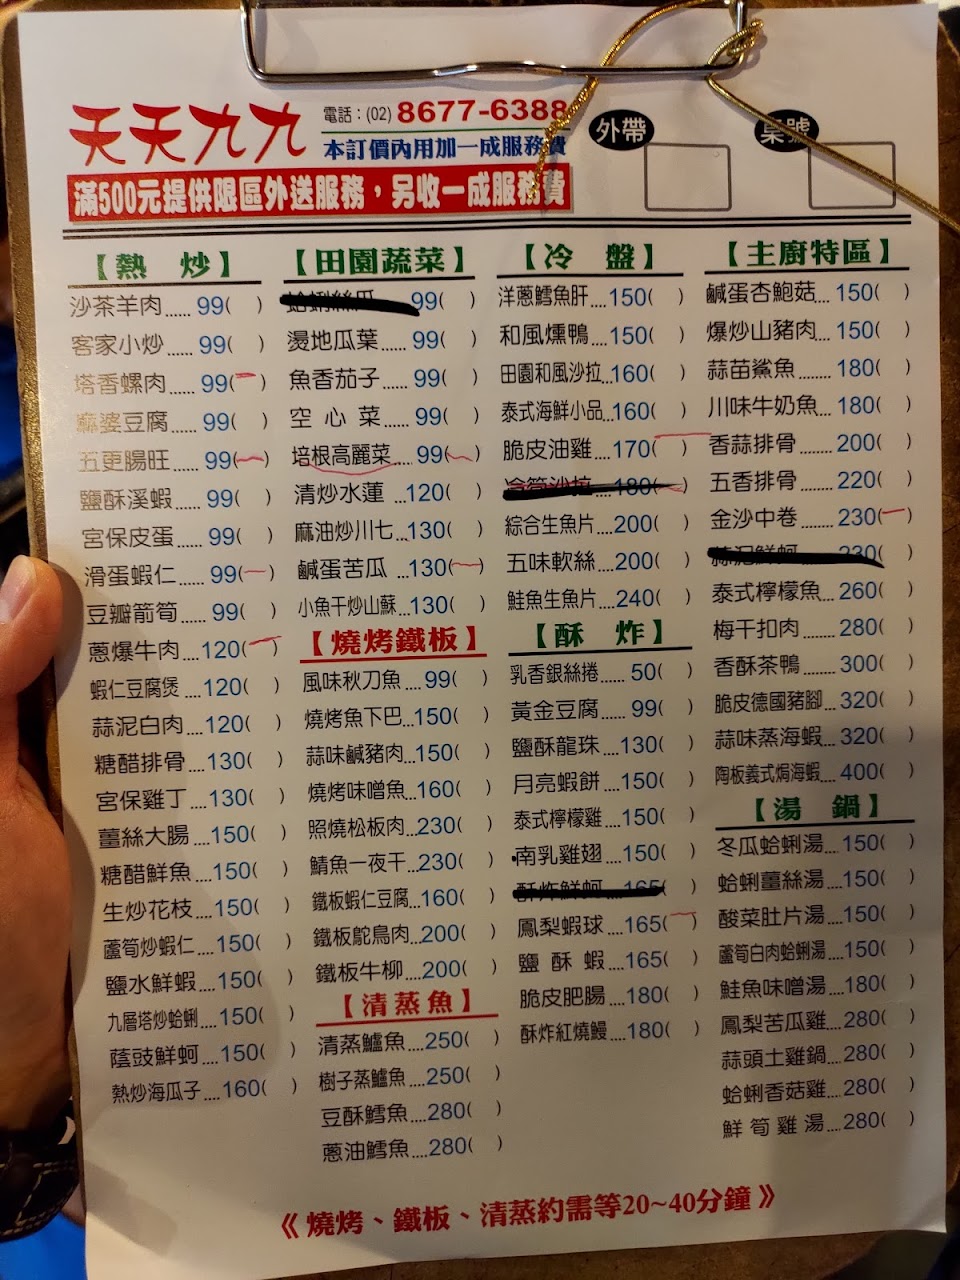 天天九九
電話：(02) 8677-6388
本訂價內用加一成服務費
滿500元提供限區外送服務，另收一成服務費
外帶
桌號
【熱 炒】
沙茶羊肉......99( )
客家小炒......99( )
塔香螺肉......99( )
麻婆豆腐......99( )
五更腸旺......99( )
鹽酥溪蝦......99( )
宮保皮蛋......99( )
滑蛋蝦仁......99( )
豆瓣箭筍......99( )
蔥爆牛肉....120( )
蝦仁豆腐煲....120( )
蒜泥白肉....120( )
糖醋排骨....130( )
宮保雞丁....130( )
薑絲大腸....150( )
糖醋鮮魚....150( )
生炒花枝....150( )
蘆筍炒蝦仁....150( )
鹽水鮮蝦....150( )
九層塔炒蛤蜊....150( )
蔭豉鮮蚵....150( )
熱炒海瓜子....160( )
【田園蔬菜】
蛤蜊絲瓜 99( )
燙地瓜葉......99( )
魚香茄子......99( )
空心菜......99( )
培根高麗菜....99( )
清炒水蓮...120( )
麻油炒川七..130( )
鹹蛋苦瓜...130( )
小魚干炒山蘇..130( )
【燒烤鐵板】
風味秋刀魚....99( )
燒烤魚下巴..150( )
蒜味鹹豬肉..150( )
燒烤味噌魚..160( )
照燒松板肉..230( )
鯖魚一夜干..230( )
鐵板蝦仁豆腐..160( )
鐵板鴕鳥肉..200( )
鐵板牛柳....200( )
【清蒸魚】
清蒸鱸魚....250( )
樹子蒸鱸魚....250( )
豆酥鱈魚....280( )
蔥油鱈魚....280( )
【冷 盤】
洋蔥鱈魚肝....150( )
和風燻鴨....150( )
田園和風沙拉..160( )
泰式海鮮小品..160( )
脆皮油雞....170( )
冷筍沙拉....180( )
綜合生魚片....200( )
五味軟絲....200( )
鮭魚生魚片....240( )
【酥 炸】
乳香銀絲捲.....50( )
黃金豆腐......99( )
鹽酥龍珠....130( )
月亮蝦餅....150( )
泰式檸檬雞....150( )
南乳雞翅....150( )
酥炸鮮蚵....165( )
鳳梨蝦球....165( )
鹽酥蝦....165( )
脆皮肥腸....180( )
酥炸紅燒鰻....180( )
【主廚特區】
鹹蛋杏鮑菇...150( )
爆炒山豬肉...150( )
蒜苗鯊魚......180( )
川味牛奶魚...180( )
香蒜排骨......200( )
五香排骨......220( )
金沙中卷......230( )
蒜泥鮮蚵......230( )
泰式檸檬魚...260( )
梅干扣肉......280( )
香酥茶鴨......300( )
脆皮德國豬腳..320( )
蒜味蒸海蝦...320( )
陶板義式焗海蝦...400( )
【湯 鍋】
冬瓜蛤蜊湯...150( )
蛤蜊薑絲湯...150( )
酸菜肚片湯...150( )
蘆筍白肉蛤蜊湯..150( )
鮭魚味噌湯...180( )
鳳梨苦瓜雞...280( )
蒜頭土雞鍋...280( )
蛤蜊香菇雞...280( )
鮮筍雞湯...280( )
《燒烤、鐵板、清蒸約需等20~40分鐘》